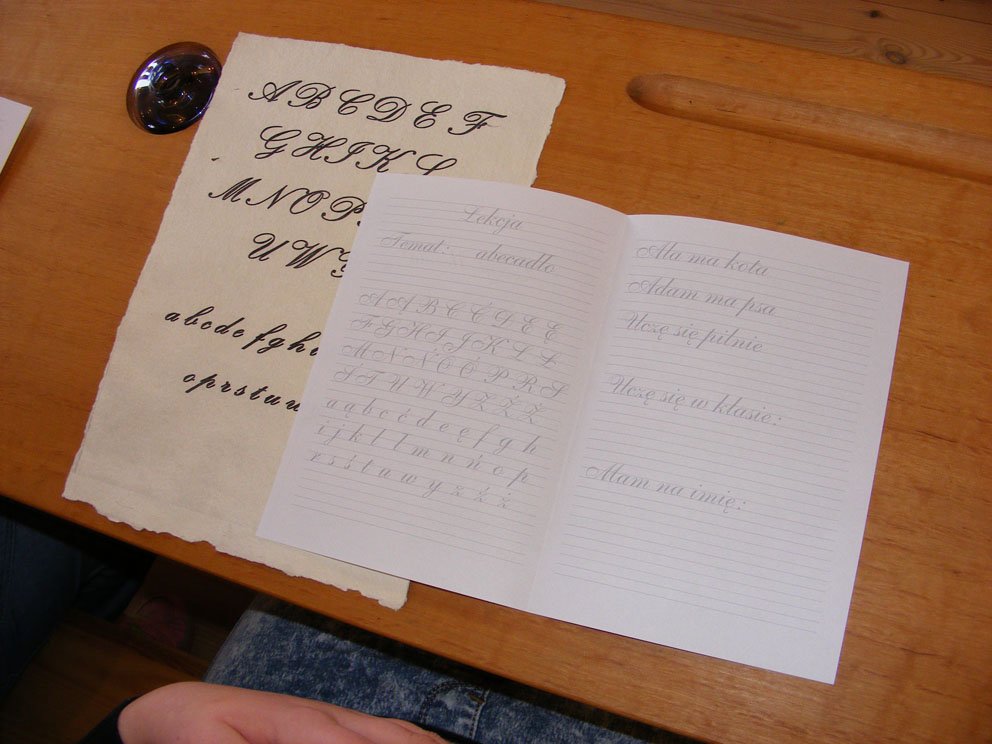 A B C D E F
G H I K L
M N O P
U W
a b c d e f g h
o p r s t u w
Lekcja
Temat: abecadło
A Ą B C Ć D E Ę
F G H I J K L Ł
M N Ń O Ó P R S
Ś T U W Y Z Ź Ż
a ą b c ć d e ę f g h
i j k l ł m n ń o p
r s ś t u w y z ź ż
Ala ma kota
Adam ma psa
Uczę się pilnie
Uczę się w klasie:
Mam na imię: